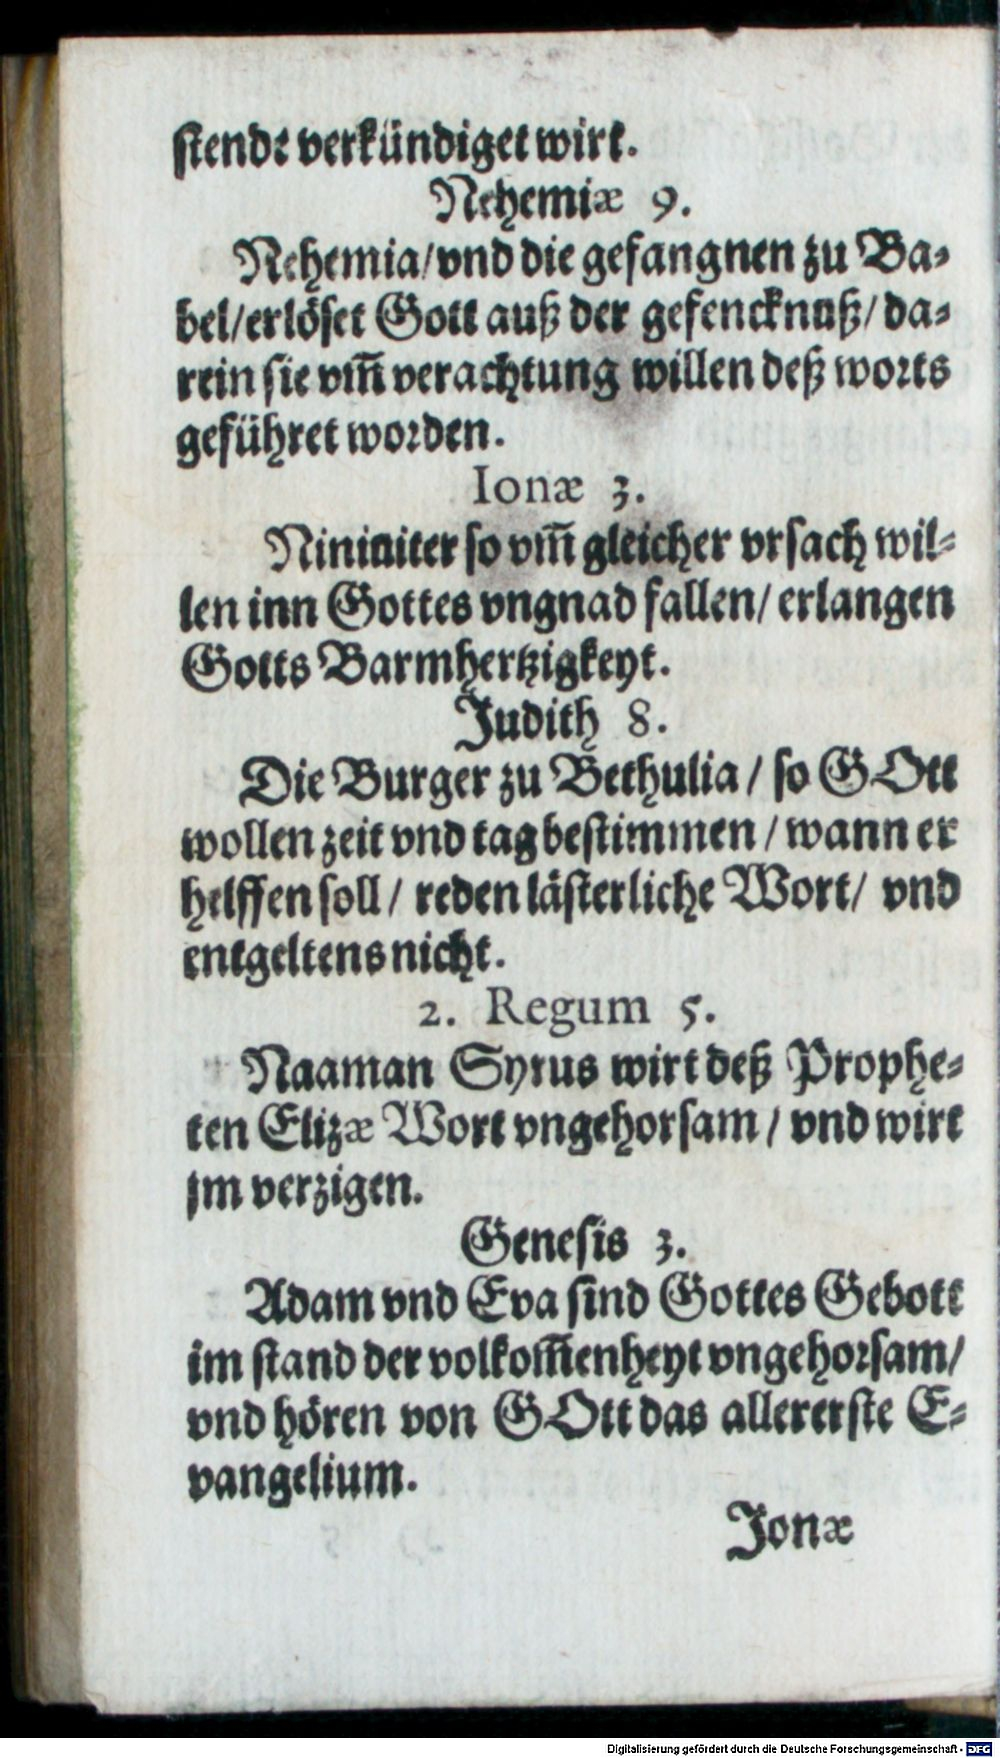 ſtendt verkündiget wirt.
Nehemiæ 9.
Nehemia/ vnd die gefangnen zu Ba-
bel/ erlöſet Gott auß der gefencknuß/ da-
rein ſie vm̃ verachtung willen deß worts
geführet worden.
Ionæ 3.
Niniuiter ſo vm̃ gleicher vrſach wil-
len inn Gottes vngnad fallen/ erlangen
Gotts Barmhertzigkeyt.
Judith 8.
Die Burger zu Bethulia / ſo GOtt
wollen zeit vnd tag beſtimmen / wann er
helffen ſoll / reden läſterliche Wort/ vnd
entgeltens nicht.
2. Regum 5.
Naaman Syrus wirt deß Prophe-
ten Elizæ Wort vngehorſam / vnd wirt
jm verzigen.
Geneſis 3.
Adam vnd Eva ſind Gottes Gebott
im ſtand der volkom̃enheyt vngehorſam/
vnd hören von GOtt das allererſte E-
vangelium.
Jonæ
Digitalisierung gefördert durch die Deutsche Forschungsgemeinschaft - DFG